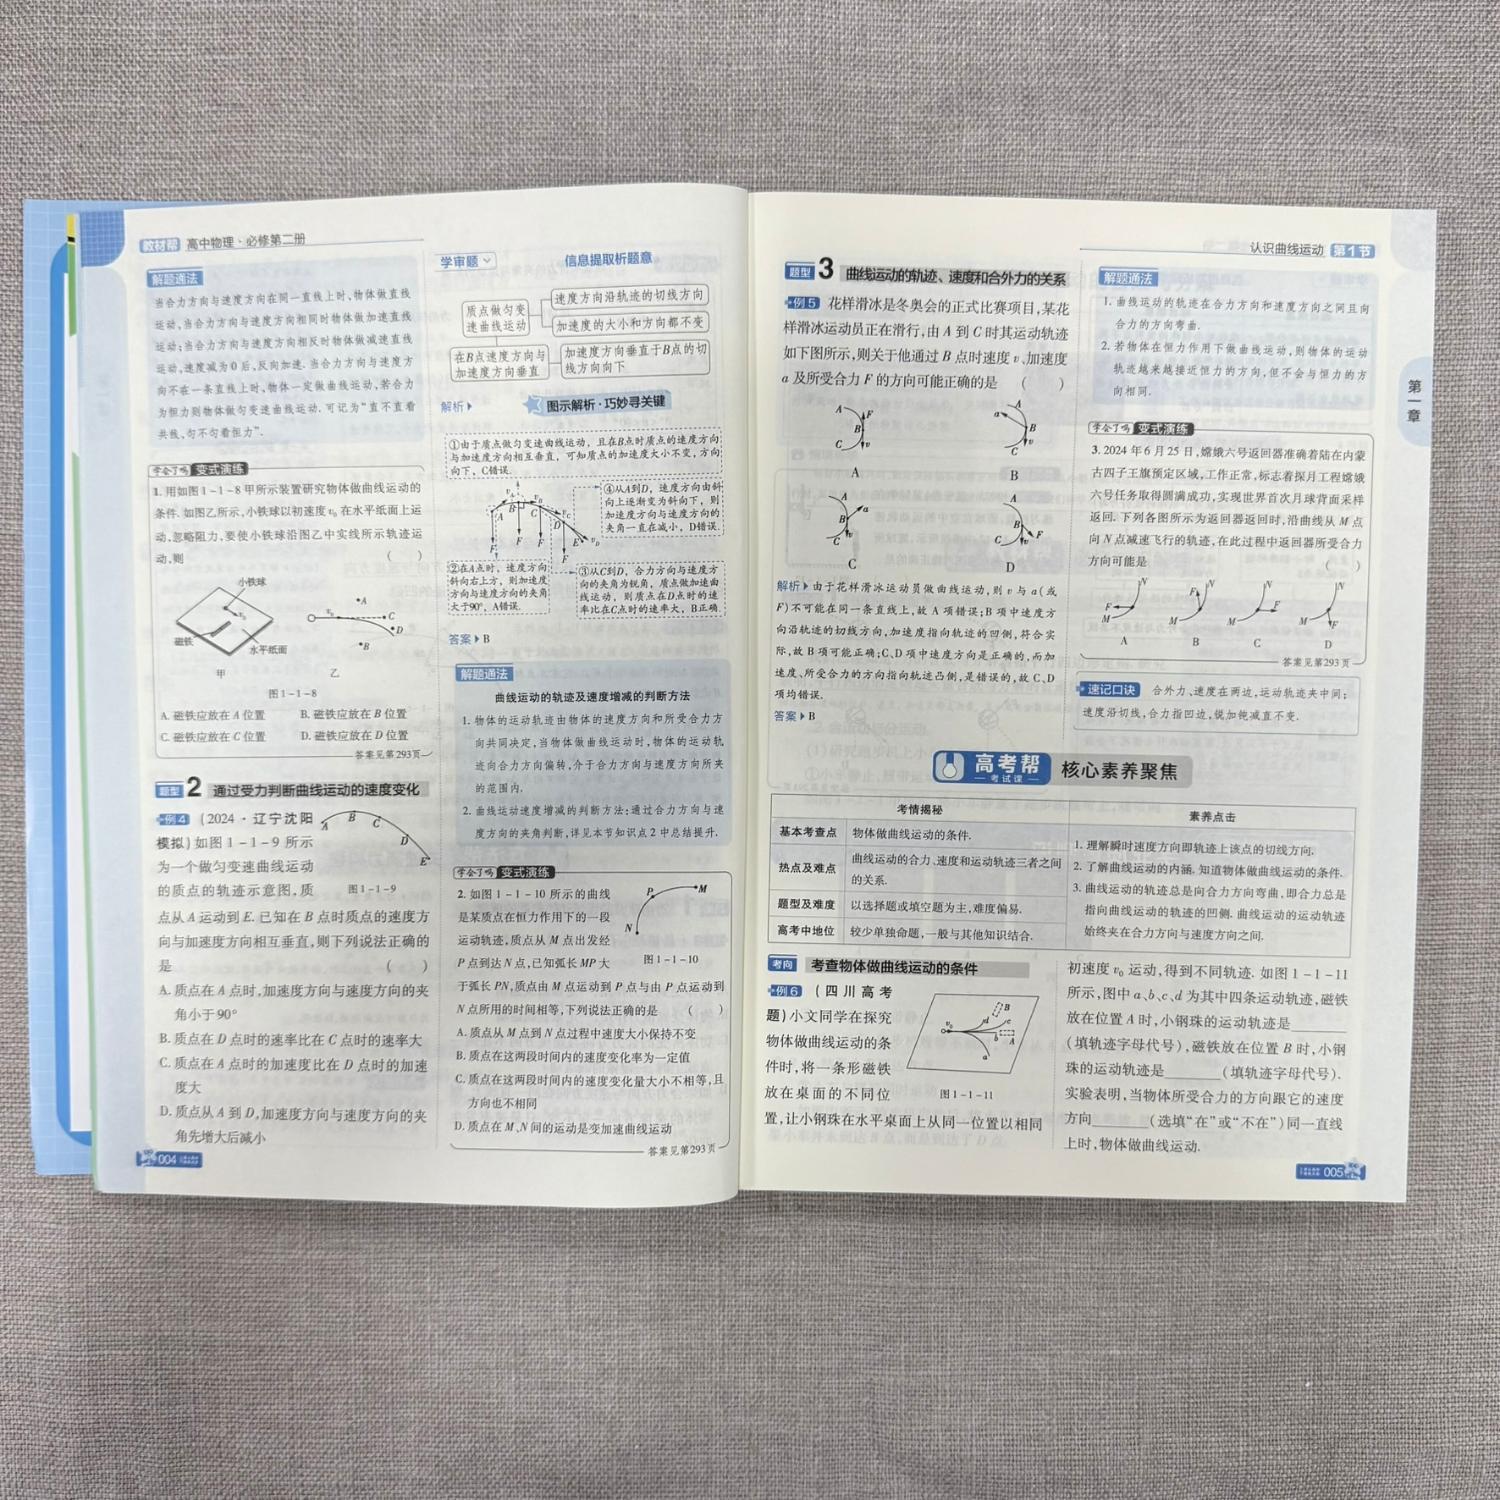 教材帮 高中物理·必修第二册
解题通法
当合力方向与速度方向在同一直线上时,物体做直线
运动,当合力方向与速度方向相同时物体做加速直线
运动;当合力方向与速度方向相反时物体做减速直线
运动,速度减为0后,反向加速.当合力方向与速度方
向不在一条直线上时,物体一定做曲线运动,若合力
为恒力则物体做匀变速曲线运动.可记为“直不直看
共线,匀不匀看恒力”.
学会了吗 变式演练
1.用如图1-1-8甲所示装置研究物体做曲线运动的
条件.如图乙所示,小铁球以初速度v₀在水平纸面上运
动,忽略阻力,要使小铁球沿图乙中实线所示轨迹运
动,则 ( )
小铁球
v₀
磁铁
水平纸面
甲
A
C
D
B
乙
图1-1-8
A.磁铁应放在A位置 B.磁铁应放在B位置
C.磁铁应放在C位置 D.磁铁应放在D位置
答案见第293页
题型2 通过受力判断曲线运动的速度变化
例4 (2024·辽宁沈阳
模拟)如图1-1-9所示
为一个做匀变速曲线运动
的质点的轨迹示意图,质
A B C D E
图1-1-9
点从A运动到E.已知在B点时质点的速度方
向与加速度方向相互垂直,则下列说法正确的
是 ( )
A.质点在A点时,加速度方向与速度方向的夹
角小于90°
B.质点在D点时的速率比在C点时的速率大
C.质点在A点时的加速度比在D点时的加速
度大
D.质点从A到D,加速度方向与速度方向的夹
角先增大后减小
004
学审题 信息提取析题意
质点做匀变
速曲线运动
速度方向沿轨迹的切线方向
加速度的大小和方向都不变
在B点速度方向与
加速度方向垂直
加速度方向垂直于B点的切
线方向向下
解析 图示解析·巧妙寻关键
①由于质点做匀变速曲线运动,且在B点时质点的速度方向
与加速度方向相互垂直,可知质点的加速度大小不变,方向
向下,C错误.
④从A到D,速度方向由斜
向上逐渐变为斜向下,则
加速度方向与速度方向的
夹角一直在减小,D错误.
②在A点时,速度方向
斜向右上方,则加速度
方向与速度方向的夹角
大于90°,A错误.
③从C到D,合力方向与速度方
向的夹角为锐角,质点做加速曲
线运动,则质点在D点时的速
率比在C点时的速率大,B正确.
答案 B
解题通法
曲线运动的轨迹及速度增减的判断方法
1.物体的运动轨迹由物体的速度方向和所受合力方
向共同决定,当物体做曲线运动时,物体的运动轨
迹向合力方向偏转,介于合力方向与速度方向所夹
的范围内.
2.曲线运动速度增减的判断方法:通过合力方向与速
度方向的夹角判断,详见本节知识点2中总结提升.
学会了吗 变式演练
2.如图1-1-10所示的曲线
是某质点在恒力作用下的一段
运动轨迹,质点从M点出发经
P点到达N点,已知弧长MP大
P M N
图1-1-10
于弧长PN,质点由M点运动到P点与由P点运动到
N点所用的时间相等,下列说法正确的是 ( )
A.质点从M点到N点过程中速度大小保持不变
B.质点在这两段时间内的速度变化率为一定值
C.质点在这两段时间内的速度变化量大小不相等,且
方向也不相同
D.质点在M、N间的运动是变加速曲线运动
答案见第293页
认识曲线运动 第1节
第一章
题型3 曲线运动的轨迹、速度和合外力的关系
例5 花样滑冰是冬奥会的正式比赛项目,某花
样滑冰运动员正在滑行,由A到C时其运动轨迹
如下图所示,则关于他通过B点时速度v、加速度
a及所受合力F的方向可能正确的是 ( )
A B C F v
A
A B C a v
B
A B C a v
C
A B C F v
D
解析 由于花样滑冰运动员做曲线运动,则v与a(或
F)不可能在同一条直线上,故A项错误;B项中速度方
向沿轨迹的切线方向,加速度指向轨迹的凹侧,符合实
际,故B项可能正确;C、D项中速度方向是正确的,而加
速度、所受合力的方向指向轨迹凸侧,是错误的,故C、D
项均错误.
答案 B
解题通法
1.曲线运动的轨迹在合力方向和速度方向之间且向
合力的方向弯曲.
2.若物体在恒力作用下做曲线运动,则物体的运动
轨迹越来越接近恒力的方向,但不会与恒力的方
向相同.
学会了吗 变式演练
3.2024年6月25日,嫦娥六号返回器准确着陆在内蒙
古四子王旗预定区域,工作正常,标志着探月工程嫦娥
六号任务取得圆满成功,实现世界首次月球背面采样
返回.下列各图所示为返回器返回时,沿曲线从M点
向N点减速飞行的轨迹,在此过程中返回器所受合力
方向可能是 ( )
F M N
A
F M N
B
F M N
C
F M N
D
答案见第293页
速记口诀 合外力、速度在两边,运动轨迹夹中间;
速度沿切线,合力指凹边,锐加钝减直不变.
高考帮 考试课 核心素养聚焦
考情揭秘 素养点击
基本考查点 物体做曲线运动的条件.
热点及难点 曲线运动的合力、速度和运动轨迹三者之间
的关系.
题型及难度 以选择题或填空题为主,难度偏易.
高考中地位 较少单独命题,一般与其他知识结合.
1.理解瞬时速度方向即轨迹上该点的切线方向.
2.了解曲线运动的内涵,知道物体做曲线运动的条件.
3.曲线运动的轨迹总是向合力方向弯曲,即合力总是
指向曲线运动的轨迹的凹侧.曲线运动的运动轨迹
始终夹在合力方向与速度方向之间.
考向 考查物体做曲线运动的条件
例6 (四川高考
题)小文同学在探究
物体做曲线运动的条
件时,将一条形磁铁
放在桌面的不同位
v₀ a b c d A B
图1-1-11
置,让小钢珠在水平桌面上从同一位置以相同
初速度v₀运动,得到不同轨迹.如图1-1-11
所示,图中a、b、c、d为其中四条运动轨迹,磁铁
放在位置A时,小钢珠的运动轨迹是______
(填轨迹字母代号),磁铁放在位置B时,小钢
珠的运动轨迹是______(填轨迹字母代号).
实验表明,当物体所受合力的方向跟它的速度
方向______(选填“在”或“不在”)同一直线
上时,物体做曲线运动.
005